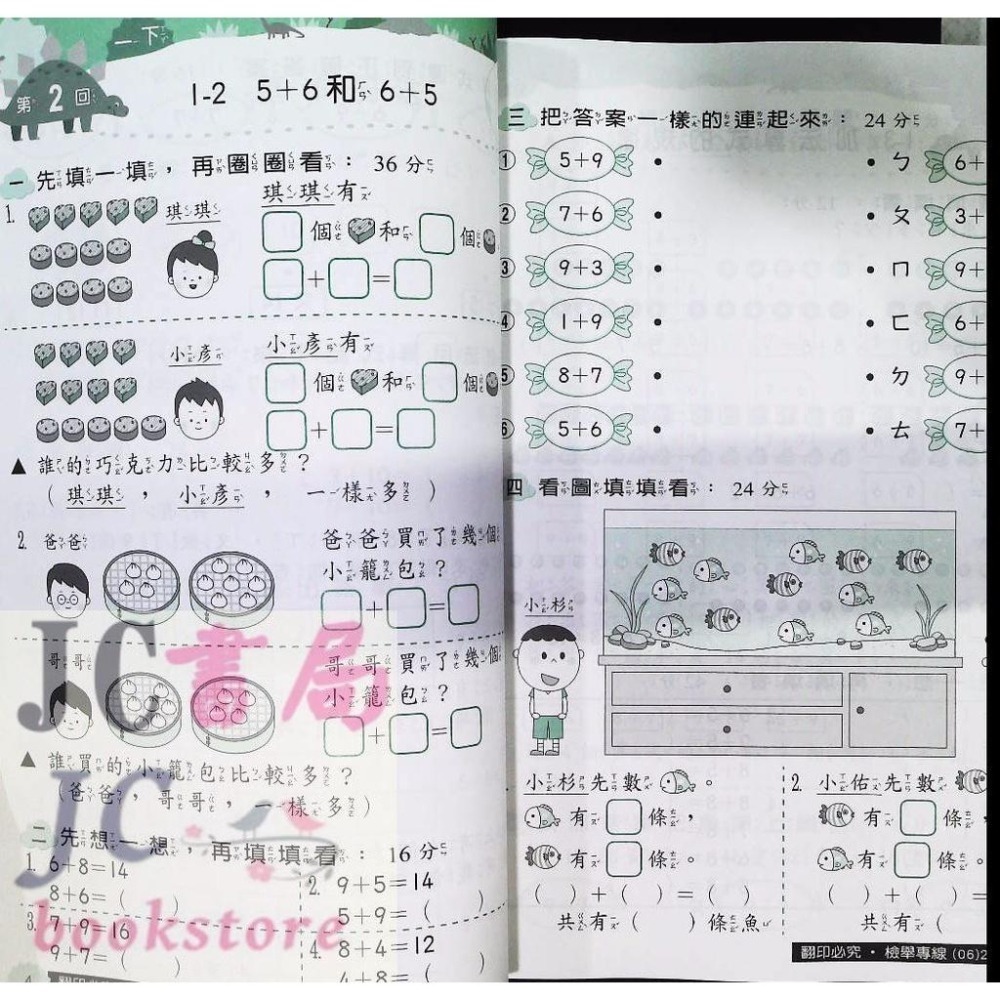 一下
第2回
1-2 5+6和6+5
一 先填一填，再圈圈看： 36分
1.
琪琪
琪琪有
個 和 個
+ =
小彥
小彥有
個 和 個
+ =
▲ 誰的巧克力比較多？
（ 琪琪 ， 小彥 ， 一樣多 ）
2. 爸爸
爸爸買了幾個
小籠包？
+ =
哥哥
哥哥買了幾個
小籠包？
+ =
▲ 誰買的小籠包比較多？
（爸爸，哥哥，一樣多）
二 先想一想，再填填看： 16分
1. 6+8=14
8+6=（ ）
2. 9+5=14
5+9=（
3. 7+9=16
9+7=（ ）
4. 8+4=12
4+8=（
JC書局
JC
bookstore
三 把答案一樣的連起來： 24分
① 5+9 • • ㄅ 6+
2 7+6 • • ㄆ 3+
3 9+3 • • ㄇ 9+
4 1+9 • • ㄈ 6+
5 8+7 • • ㄉ 9+
6 5+6 • • ㄊ 7+
四 看圖填填看： 24分
小杉
小杉先數 。
有 條，
有 條。
（ ）+（ ）=（ ）
共有（ ）條魚
2. 小佑先數
有 條
有 條。
（ ）+（ ）=
共有（
翻印必究・檢舉專線 (06)2